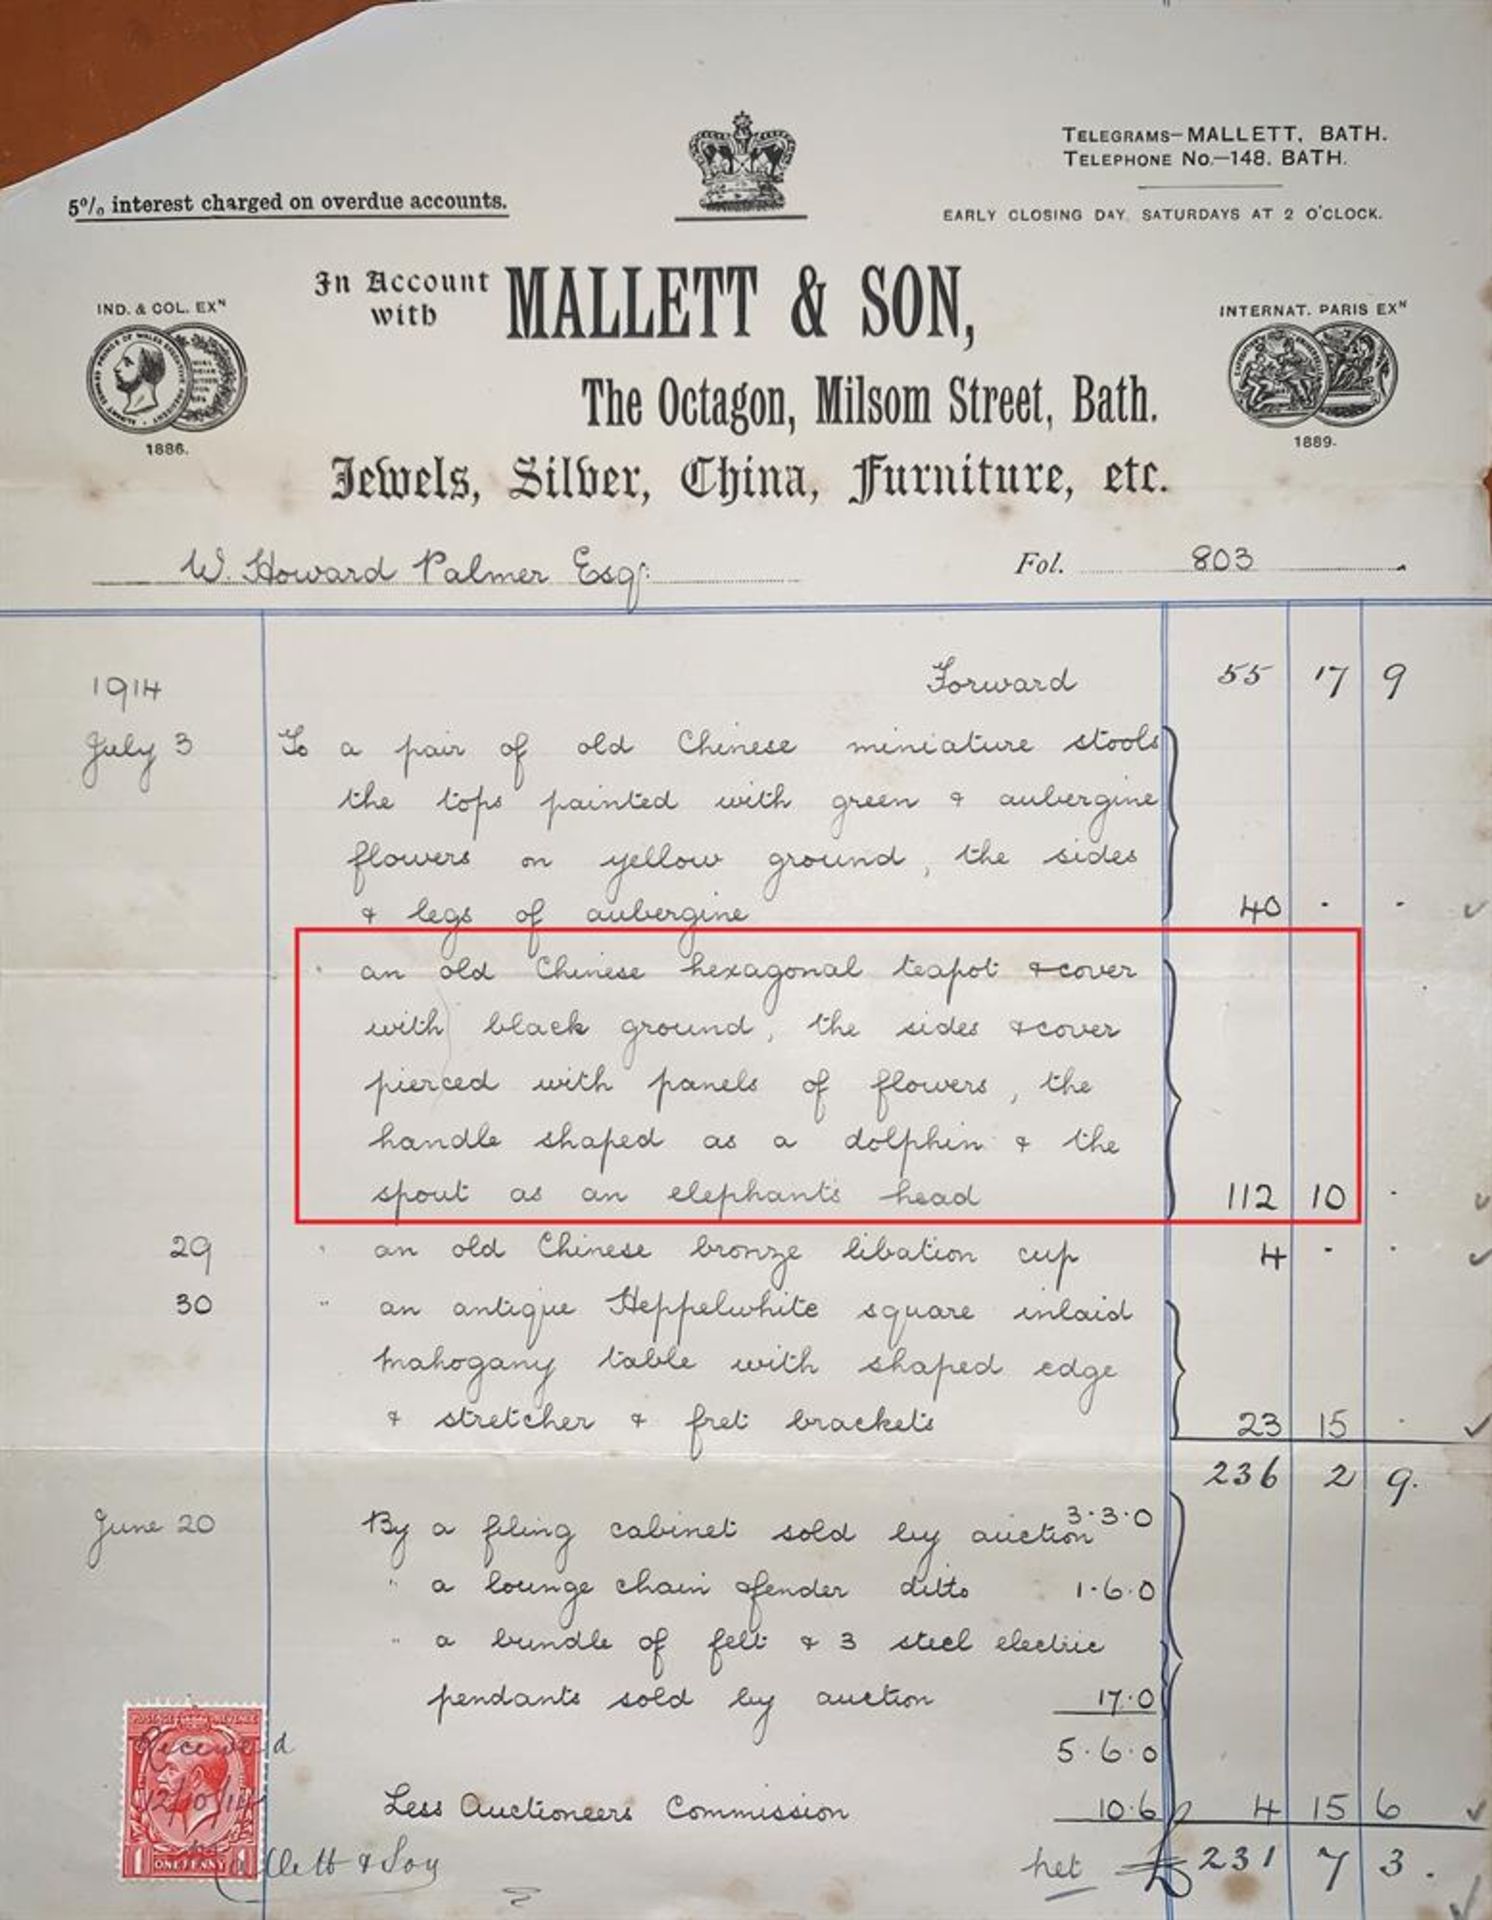 TELEGRAMS—MALLETT, BATH.
TELEPHONE No.—148. BATH.
5% interest charged on overdue accounts.
EARLY CLOSING DAY, SATURDAYS AT 2 O'CLOCK.
In Account with MALLETT & SON,
IND. & COL. EXN
INTERNAT. PARIS EXN
The Octagon, Milsom Street, Bath.
1886.
1889.
Jewels, Silver, China, Furniture, etc.
W. Howard Palmer Esqr. Fol. 803
1914 Forward 55 17 9
July 3 To a pair of old Chinese miniature stools
the tops painted with green & aubergine
flowers on yellow ground, the sides
& legs of aubergine 40 . .
" an old Chinese hexagonal teapot & cover
with black ground, the sides & cover
pierced with panels of flowers, the
handle shaped as a dolphin & the
spout as an elephants head 112 10 .
29 " an old Chinese bronze libation cup 4 . .
30 " an antique Heppelwhite square inlaid
mahogany table with shaped edge
& stretcher & fret brackets 23 15 .
236 2 9.
June 20 By a filing cabinet sold by auction 3.3.0
" a lounge chair & fender ditto 1.6.0
" a bundle of felt & 3 steel electric
pendants sold by auction 17.0
5.6.0
Less Auctioneers Commission 10.6 4 15 6
net £231 7 3.
POSTAGE REVENUE
Received
12/10/14
Mallett & Son
1 ONE PENNY 1